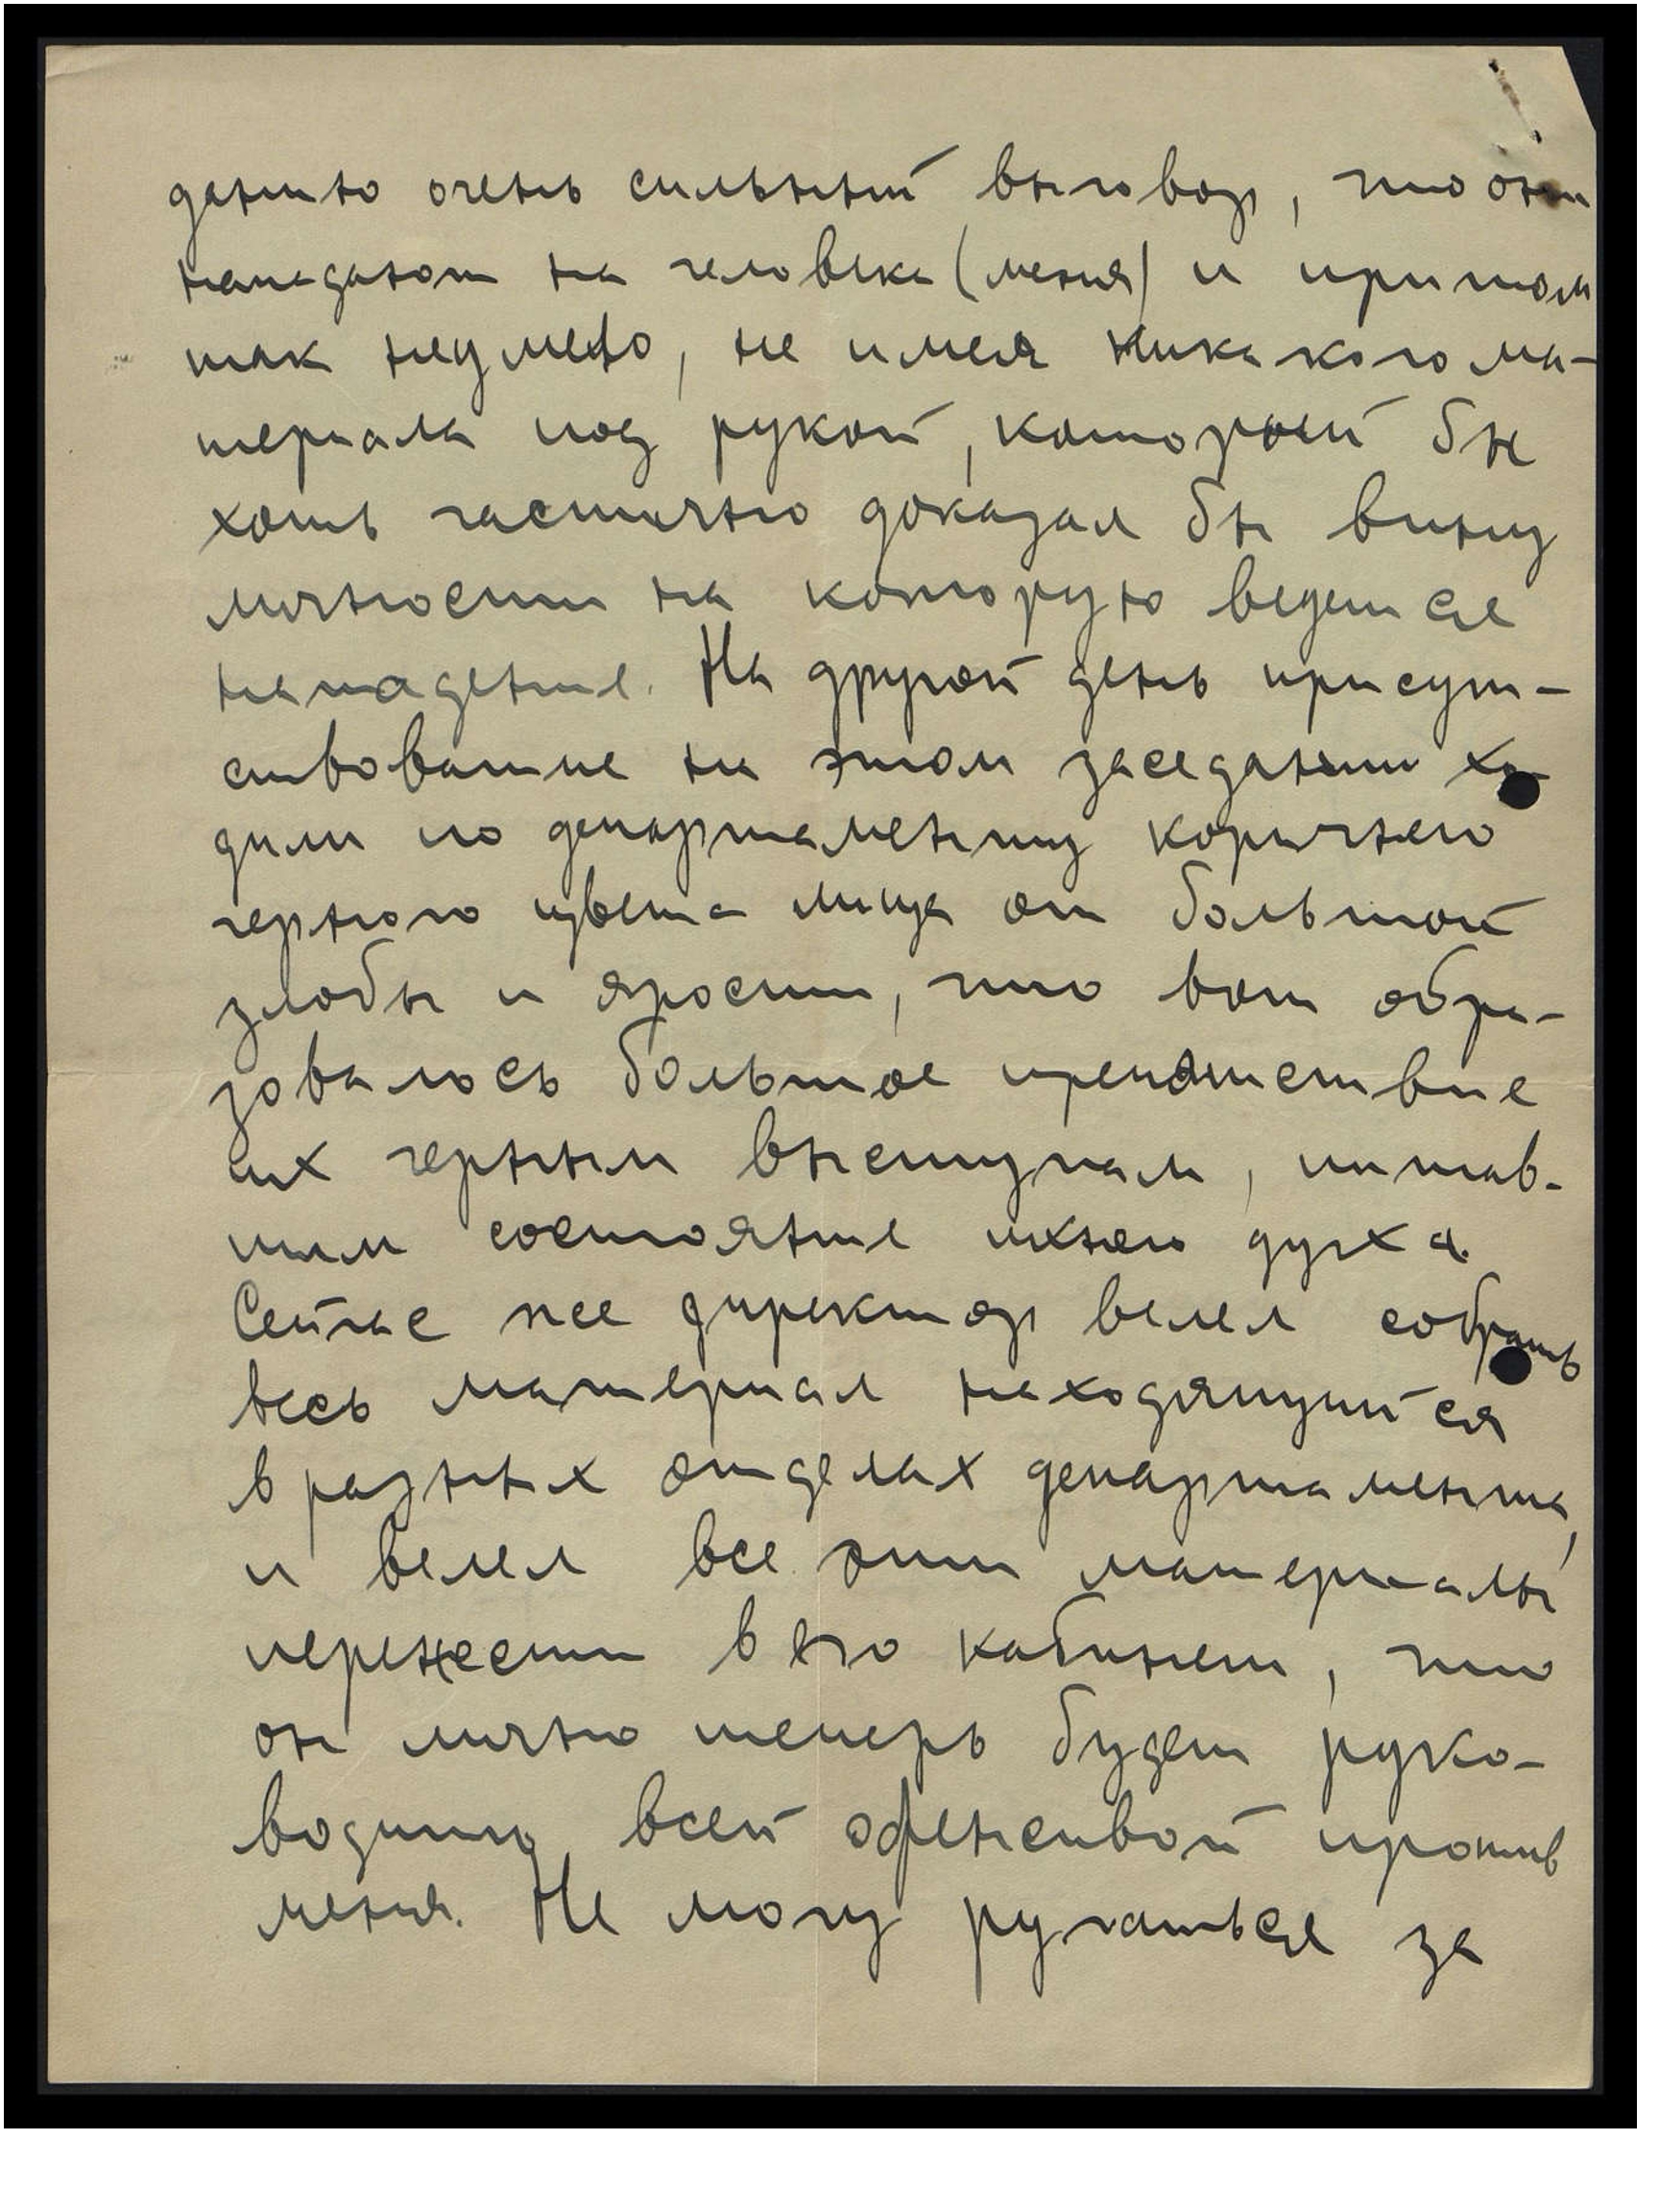 данию очень сильный выговор, что они
нападают на человека (меня) и притом
так неумело, не имея никакого ма-
териала под рукой, который бы
хоть частично доказал бы вину
личности на которую ведется
нападение. На другой день присут-
ствовавшие на этом заседании хо-
дили по департаменту коричнего
черного цвета лица от большой
злобы и ярости, что вот обра-
зовалось большое препятствие
их черным выступам, питав-
шим состояние ихнего духа.
Сейчас же директор велел собрать
весь материал находящийся
в разных отделах департамента,
и велел все эти материалы
перенести в его кабинет, что
он лично теперь будет руко-
водить всей офенсивой против
меня. Не могу ручаться за